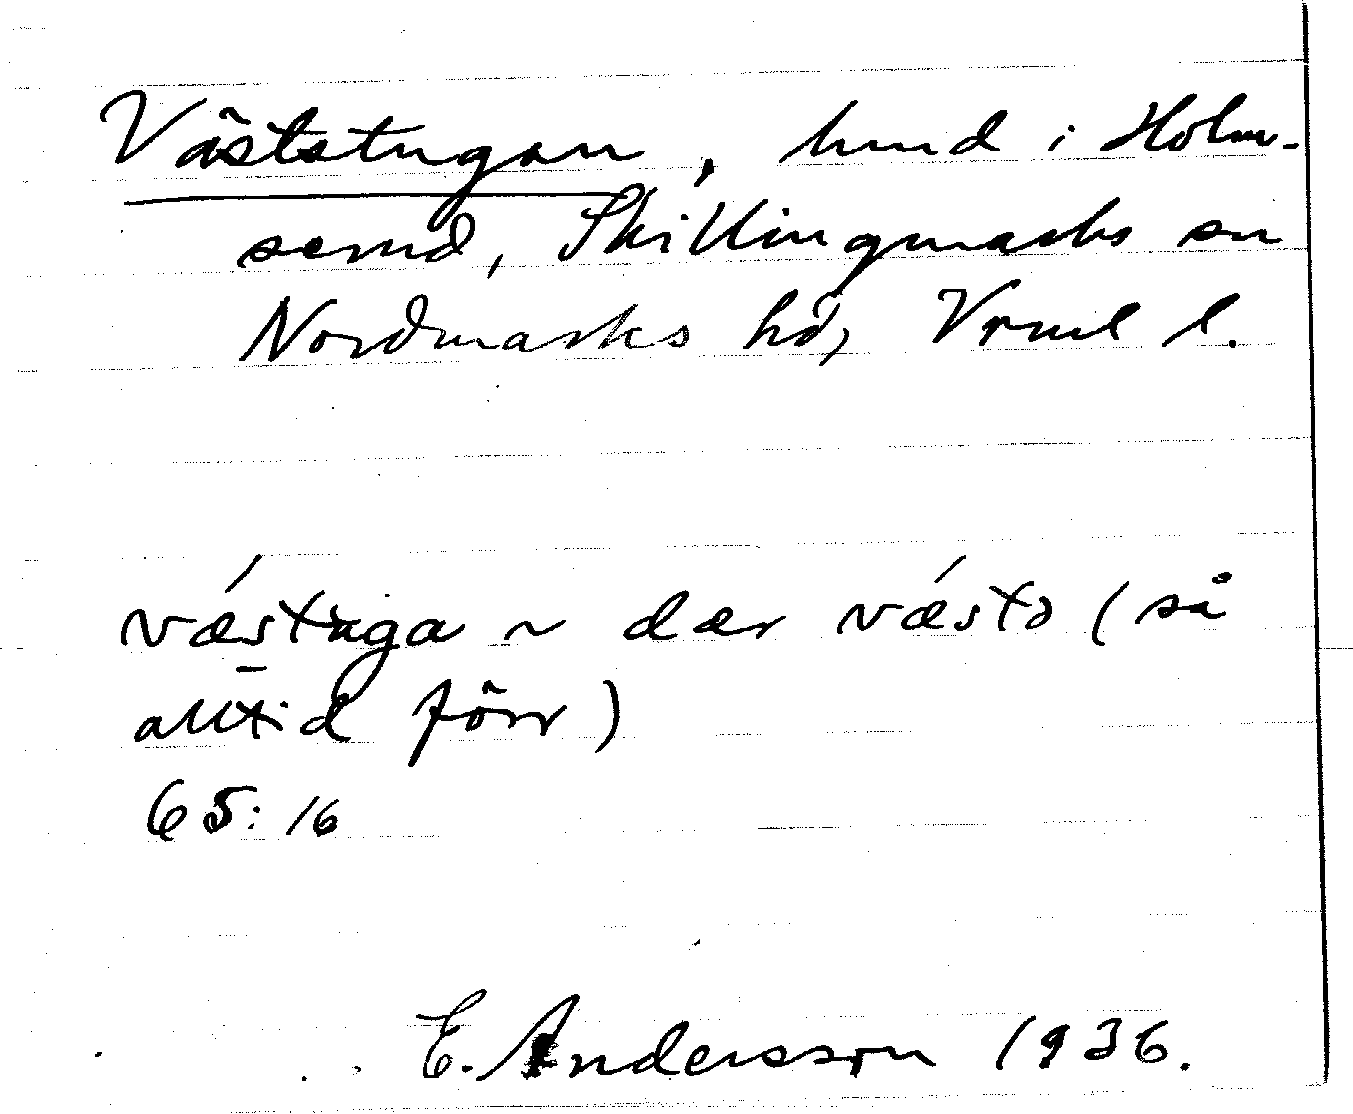 Väststugan, lund i Holm-
serud, Skillingmarks sn
Nordmarks hd, Vrml l.
vǽstuga ~ dær vǽstə (så
alltid förr)
65:16
E. Andersson 1936.